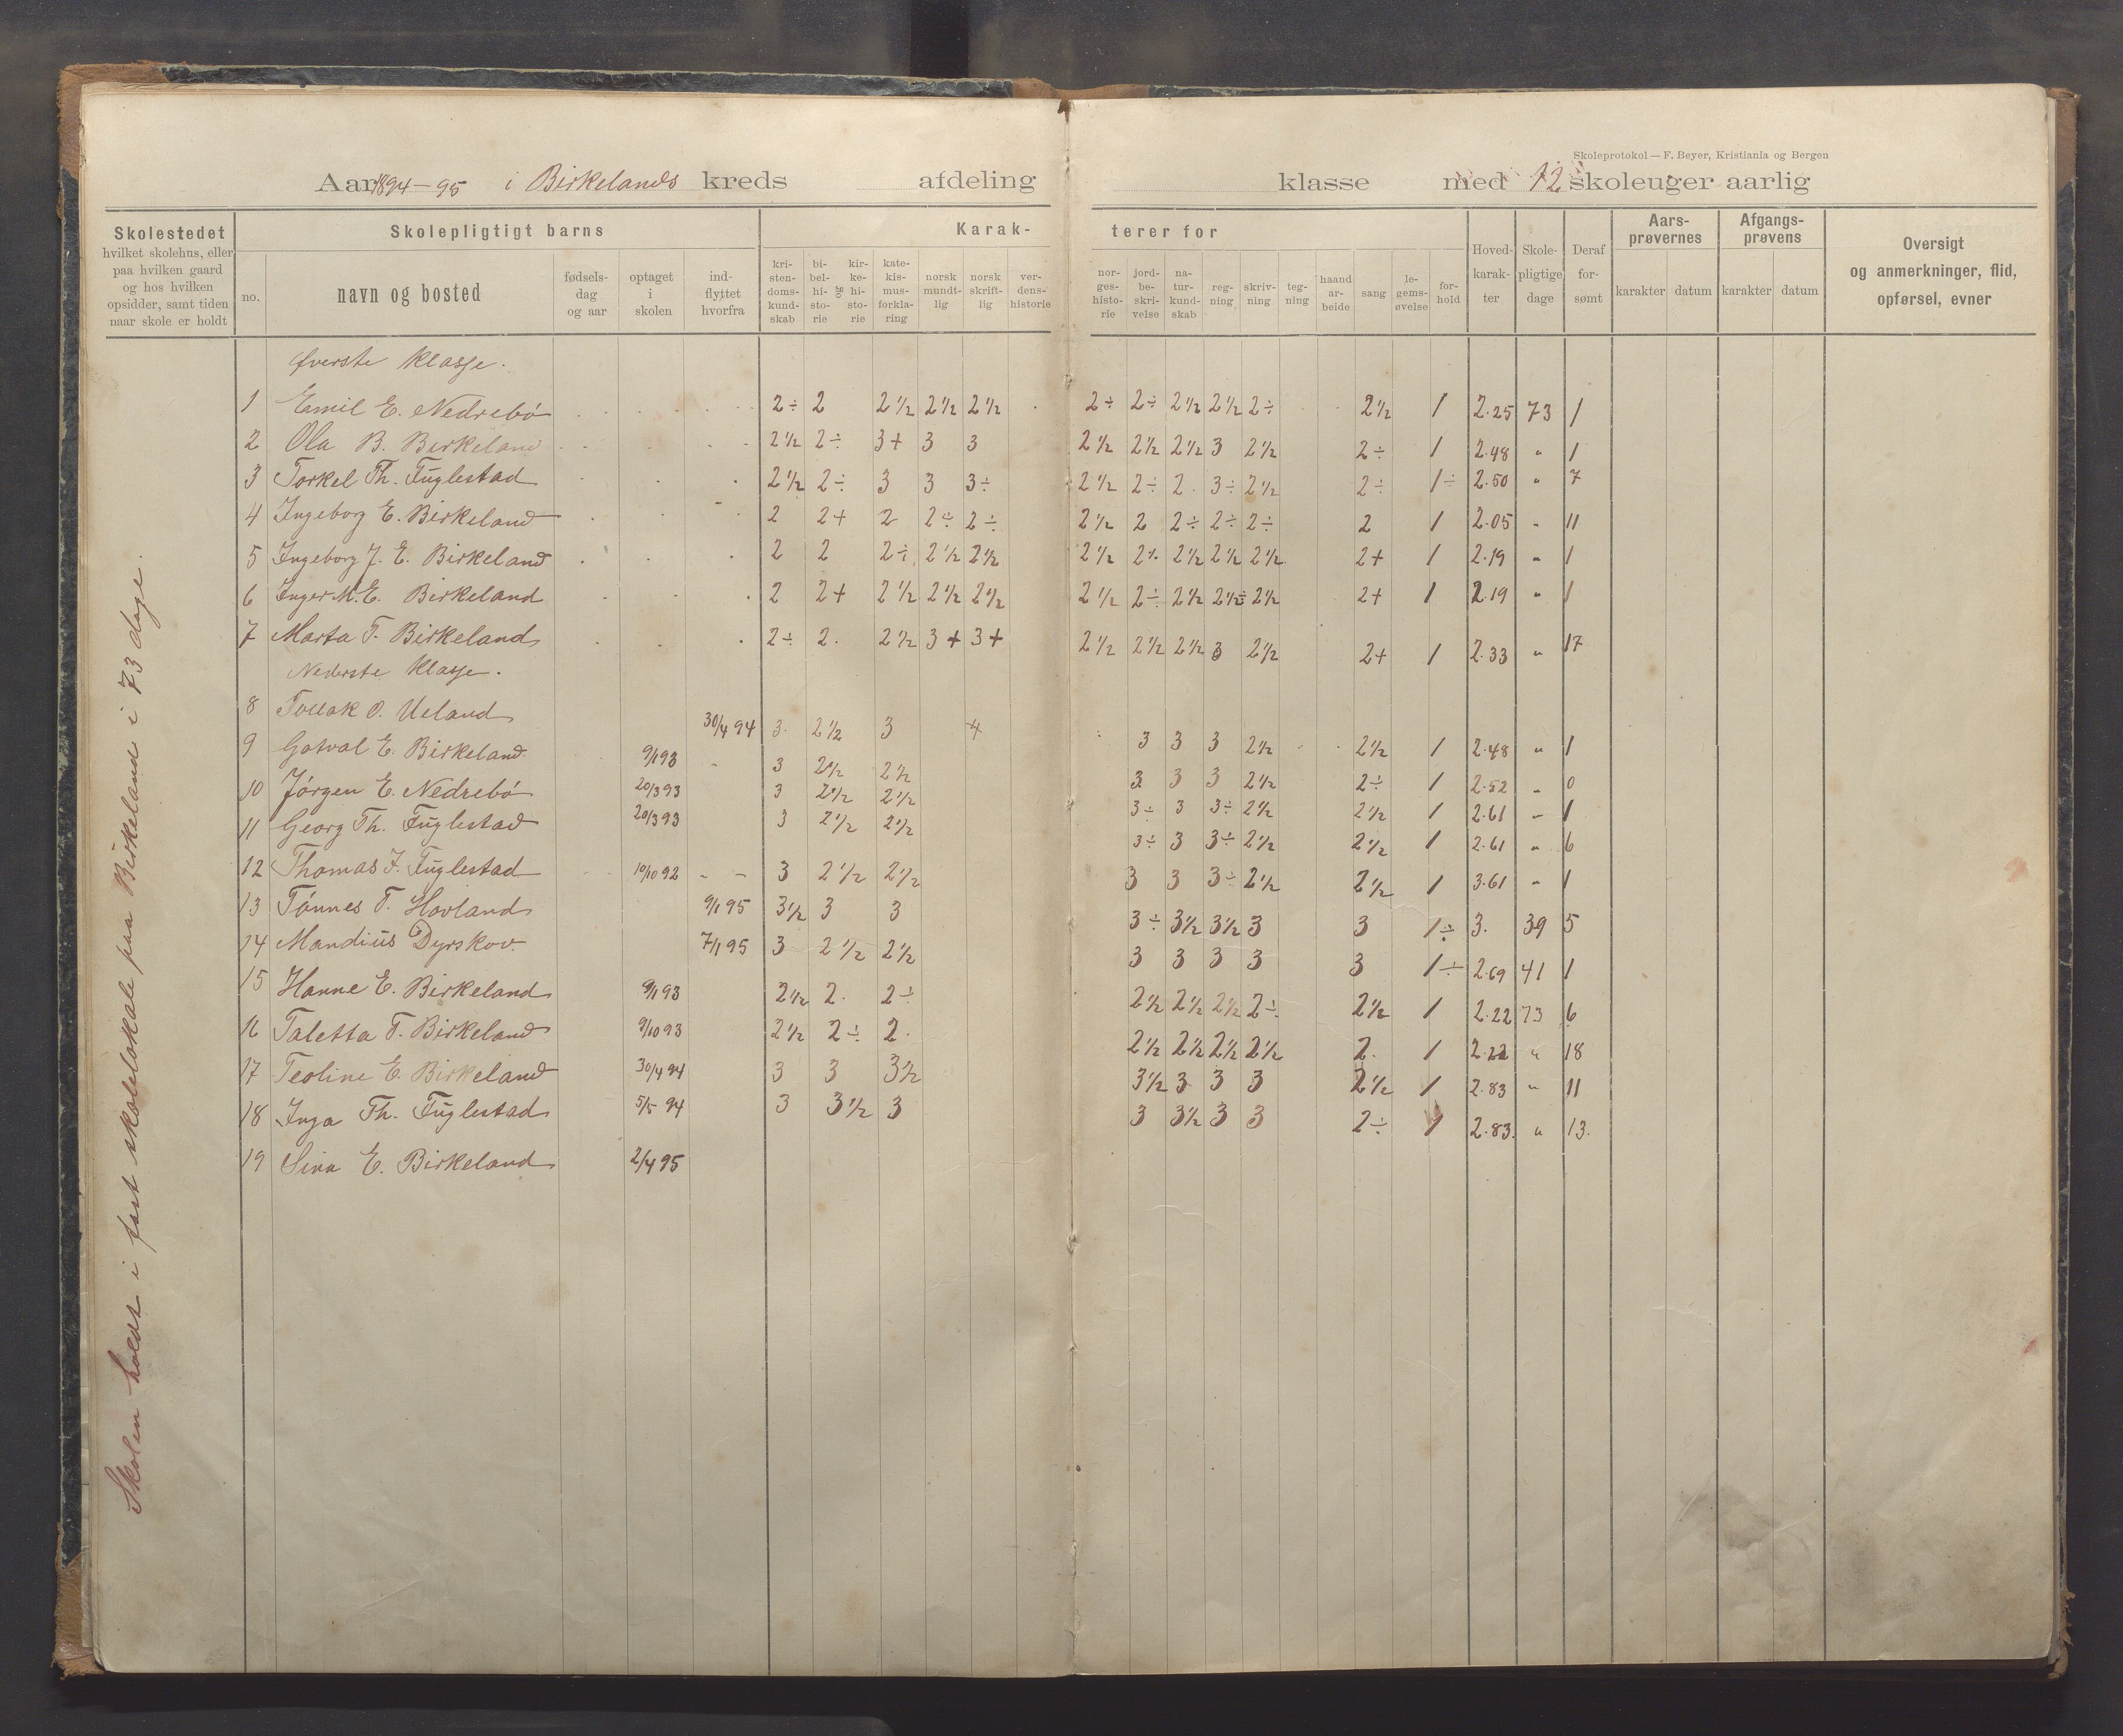 Skoleprotokol — F. Beyer, Kristiania og Bergen
Aar 1894-95 i Birkelands kreds afdeling klasse med 12 skoleuger aarlig
Skolestedet
hvilket skolehus, eller
paa hvilken gaard
og hos hvilken
opsidder, samt tiden
naar skole er holdt
Skolepligtigt barns
no.
navn og bosted
fødsels-
dag
og aar
optaget
i
skolen
ind-
flyttet
hvorfra
Karak-
kri-
sten-
doms-
kund-
skab
bi-
bel-
hi-
sto-
rie
og
kir-
ke-
hi-
sto-
rie
kate-
kis-
mus-
forkla-
ring
norsk
mundt-
lig
norsk
skrift-
lig
ver-
dens-
historie
terer for
nor-
ges-
histo-
rie
jord-
be-
skri-
velse
na-
tur-
kund-
skab
reg-
ning
skriv-
ning
teg-
ning
haand
ar-
beide
sang
le-
gems-
øvelse
for-
hold
Hoved-
karak-
ter
Skole-
pligtige
dage
Deraf
for-
sømt
Aars-
prøvernes
karakter datum
Afgangs-
prøvens
karakter datum
Oversigt
og anmerkninger, flid,
opførsel, evner
Skolen holdt i fast skolelokale paa Birkeland i 73 dage.
Øverste klasse.
1 Emil E. Nedrebö 2÷ 2 2½ 2½ 2½ 2÷ 2÷ 2½ 2½ 2÷ 2½ 1 2.25 73 1
2 Ola B. Birkeland 2½ 2÷ 3+ 3 3 2½ 2½ 2½ 3 2½ 2÷ 1 2.48 " 1
3 Torkel Th. Fuglestad 2½ 2÷ 3 3 3÷ 2½ 2÷ 2. 3÷ 2½ 2÷ 1÷ 2.50 " 7
4 Ingeborg E. Birkeland 2 2+ 2 2÷ 2÷ 2½ 2 2÷ 2÷ 2÷ 2 1 2.05 " 11
5 Ingeborg J. E. Birkeland 2 2 2÷ 2½ 2½ 2½ 2÷ 2½ 2½ 2½ 2+ 1 2.19 " 1
6 Inger M. E. Birkeland 2 2+ 2½ 2½ 2½ 2½ 2÷ 2½ 2½÷ 2½ 2+ 1 2.19 " 1
7 Marta T. Birkeland 2÷ 2. 2½ 3+ 3+ 2½ 2½ 2½ 3 2½ 2+ 1 2.33 " 17
Nederste klasse.
8 Tollak O. Ueland 30/4 94 3. 2½ 3 4 3 3 3 2½ 2½ 1 2.48 " 1
9 Gotval E. Birkeland 9/1 93 - 3 2½ 2½ 3 3 3 2½ 2÷ 1 2.52 " 0
10 Jörgen E. Nedrebö 20/3 93 3 2½ 2½ 3÷ 3 3÷ 2½ 2½ 1 2.61 " 1
11 Georg Th. Fuglestad 20/3 93 3 2½ 2½ 3÷ 3 3÷ 2½ 2½ 1 2.61 " 6
12 Thomas J. Fuglestad 10/10 92 - - 3 2½ 2½ 3 3 3÷ 2½ 2½ 1 3.61 " 1
13 Tönnes T. Hovland 9/1 95 3½ 3 3 3÷ 3½ 3½ 3 3 1÷ 3. 39 5
14 Mandius Dyrskov. 7/1 95 3 2½ 2½ 3 3 3 3 3 1÷ 2.69 41 1
15 Hanne E. Birkeland 9/1 93 2½ 2. 2÷ 2½ 2½ 2½ 2÷ 2½ 1 2.22 73 6
16 Taletta T. Birkeland 9/10 93 2½ 2÷ 2. 2½ 2½ 2½ 2½ 2. 1 2.22 " 18
17 Teoline E. Birkeland 30/4 94 3 3 3½ 3½ 3 3 3 2½ 1 2.83 " 11
18 Inga Th. Fuglestad 5/5 94 3 3½ 3 3 3½ 3 3 2÷ 1 2.83. " 13.
19 Sina E. Birkeland 2/4 95